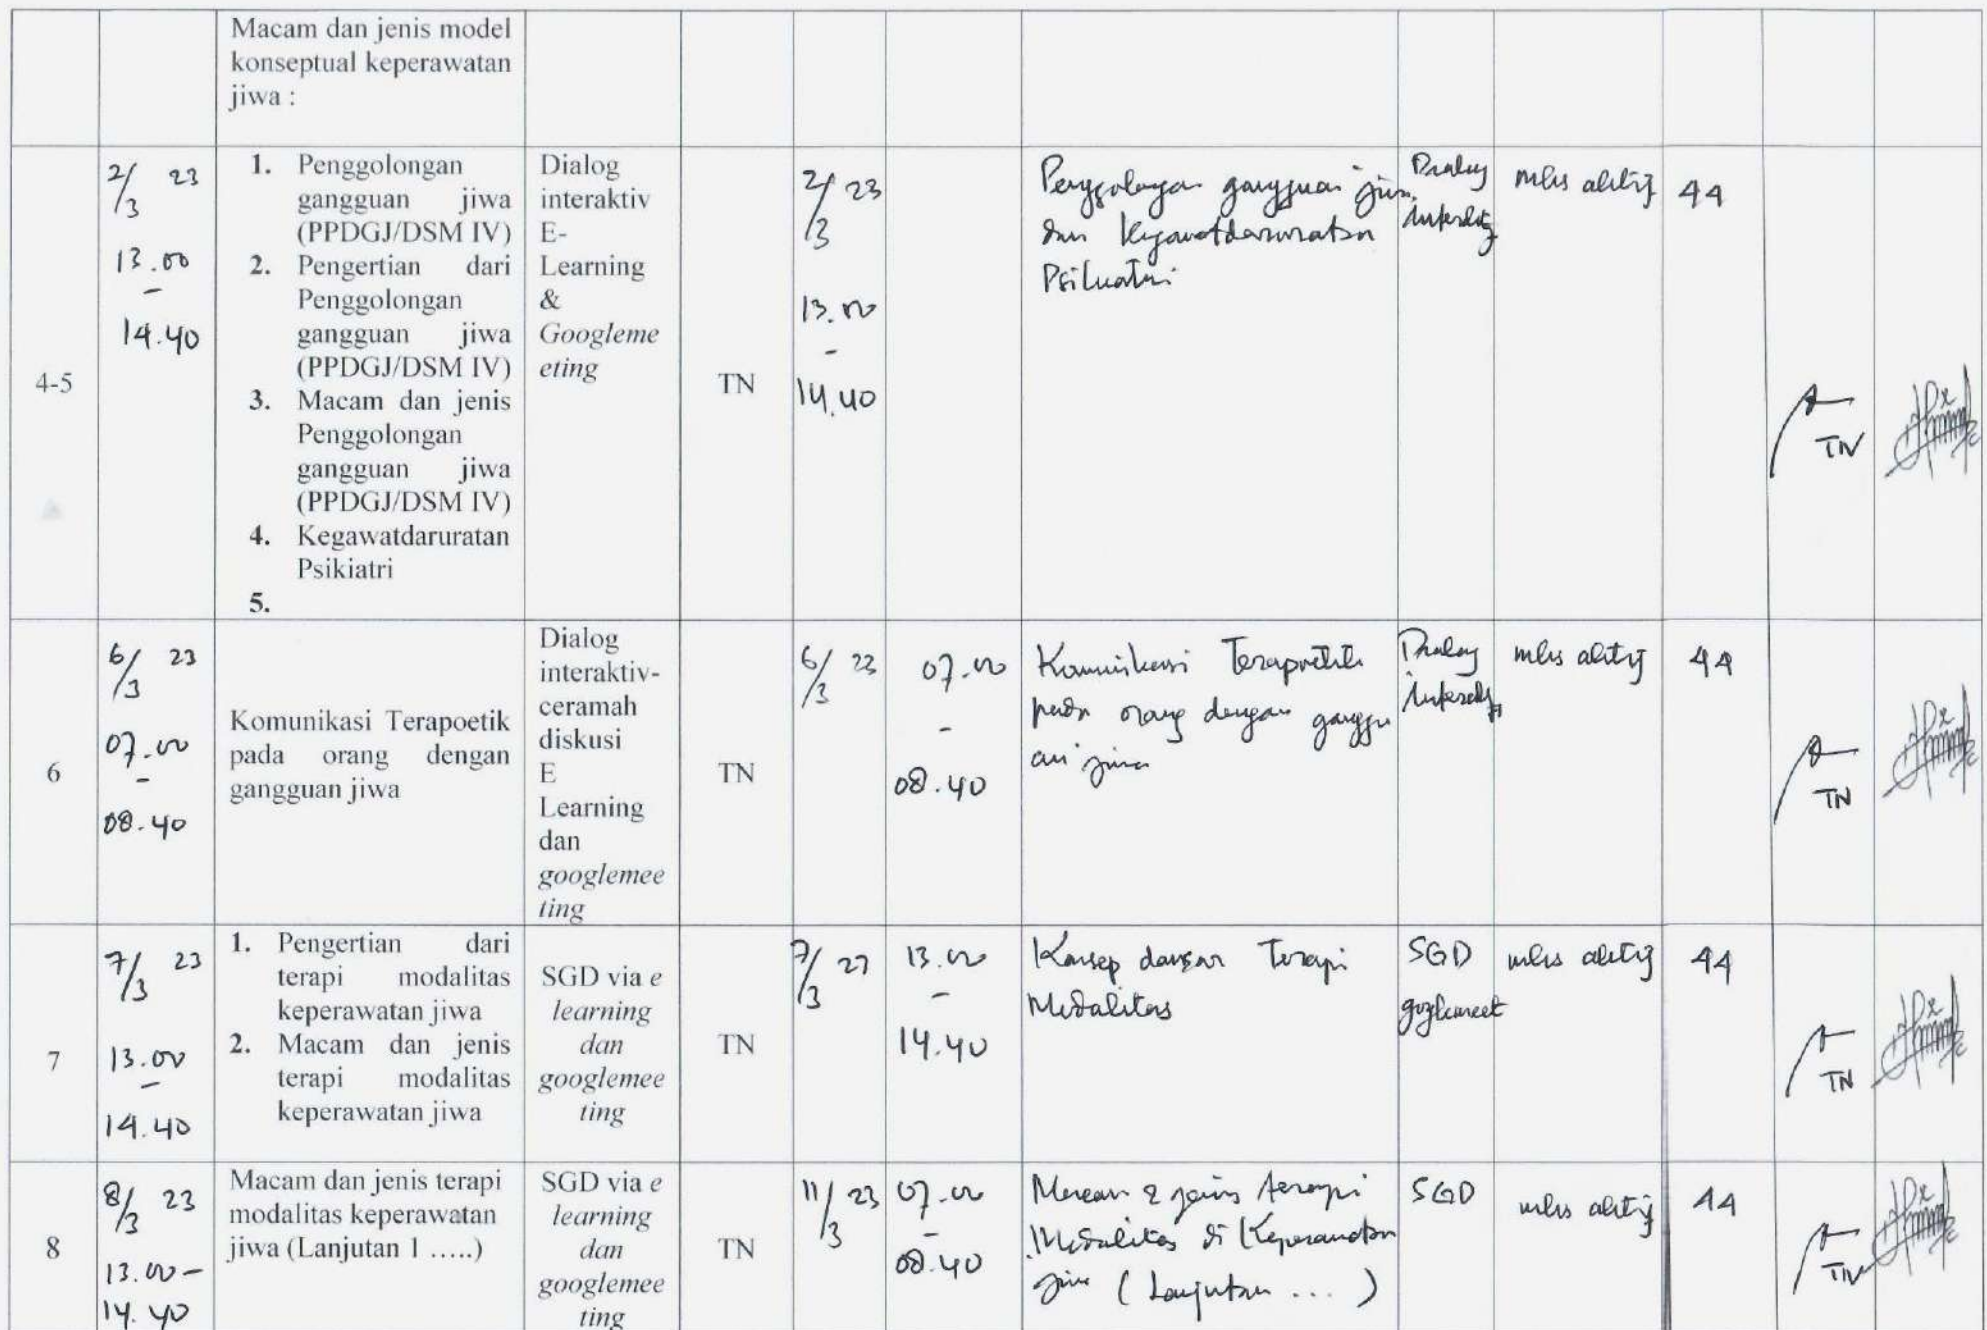 Macam dan jenis model
konseptual keperawatan
jiwa :
4-5
2/3 23
13.00
-
14.40
1. Penggolongan
gangguan jiwa
(PPDGJ/DSM IV)
2. Pengertian dari
Penggolongan
gangguan jiwa
(PPDGJ/DSM IV)
3. Macam dan jenis
Penggolongan
gangguan jiwa
(PPDGJ/DSM IV)
4. Kegawatdaruratan
Psikiatri
5.
Dialog
interaktiv
E-
Learning
&
Googleme
eting
TN
2/3 23
13.00
-
14.40
Penggolongan gangguan jiwa
dan Kegawatdaruratan
Psikiatri
Dialog
interaktif
mhs aktif
44
TN
6
6/3 23
07.00
-
08.40
Komunikasi Terapoetik
pada orang dengan
gangguan jiwa
Dialog
interaktiv-
ceramah
diskusi
E
Learning
dan
googlemee
ting
TN
6/3 23
07.00
-
08.40
Komunikasi Terapoetik
pada orang dengan ganggu
an jiwa
Dialog
interaktif
mhs aktif
44
TN
7
7/3 23
13.00
-
14.40
1. Pengertian dari
terapi modalitas
keperawatan jiwa
2. Macam dan jenis
terapi modalitas
keperawatan jiwa
SGD via e
learning
dan
googlemee
ting
TN
7/3 23
13.00
-
14.40
Konsep dasar Terapi
Modalitas
SGD
mhs aktif
44
TN
8
8/3 23
13.00-
14.40
Macam dan jenis terapi
modalitas keperawatan
jiwa (Lanjutan 1 .....)
SGD via e
learning
dan
googlemee
ting
TN
11/3 23
07.00
-
08.40
Macam & jenis terapi
Modalitas di Keperawatan
jiwa (Lanjutan ...)
SGD
mhs aktif
44
TN